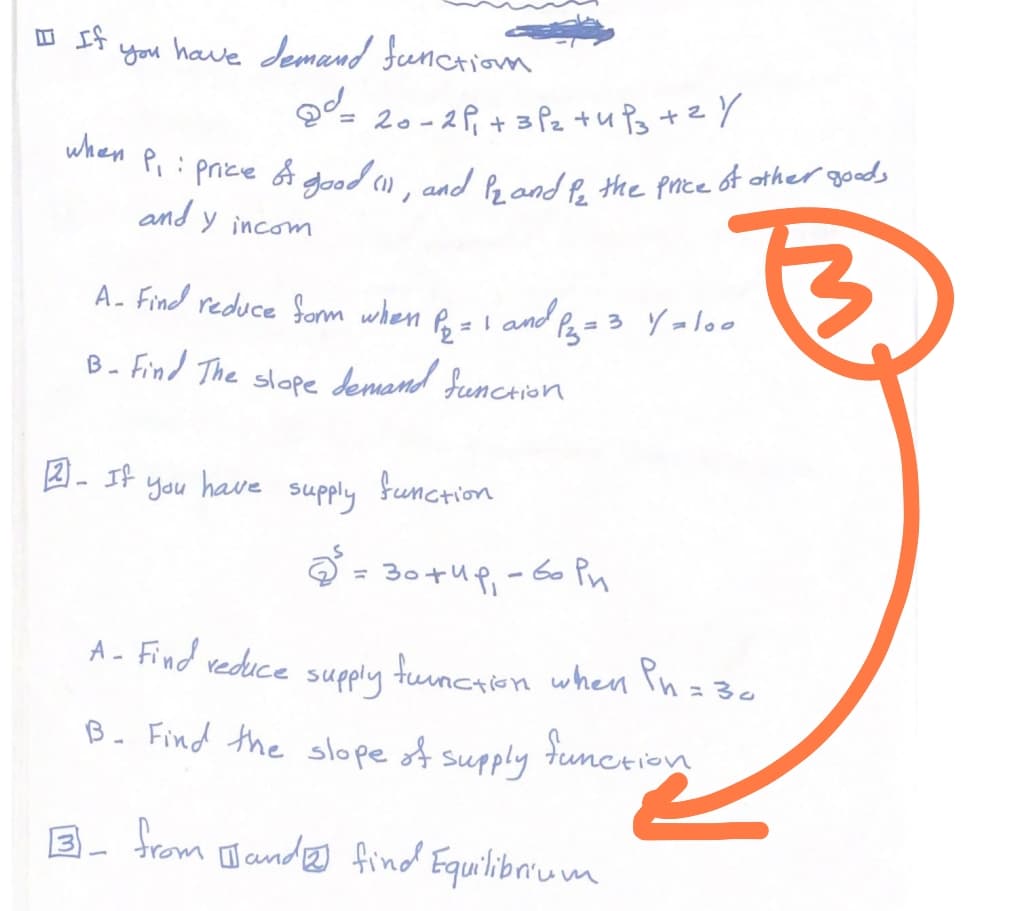 1 If you have demand function
Qd = 20 - 2P1 + 3P2 + 4P3 + 2 Y
when P1 : price of good (1), and P2 and P2 the price of other goods
and y incom
3
A- Find reduce form when P2 = 1 and P3 = 3 Y = 100
B- Find The slope demand function
2- If you have supply function
Qs = 30 + 4P1 - 60 Pn
A- Find reduce supply function when Pn = 30
B- Find the slope of supply function
3- from 1 and 2 find Equilibrium